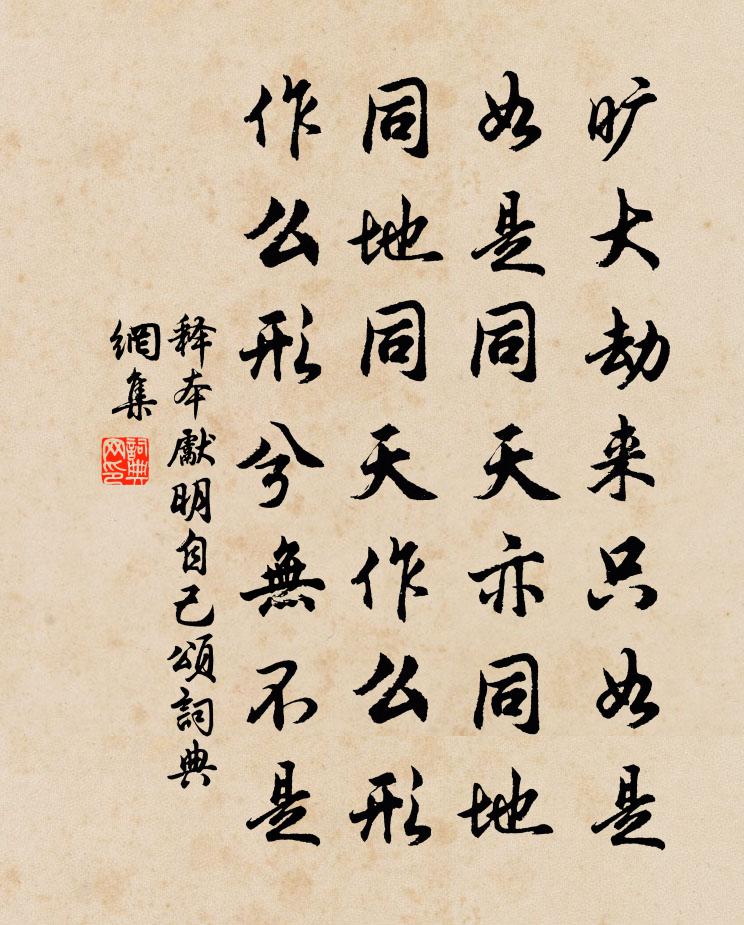 旷大劫来只如是
如是同天亦同地
同地同天作么形
作么形兮無不是
释本獻明自己頌詞典
網集
詞典
网印